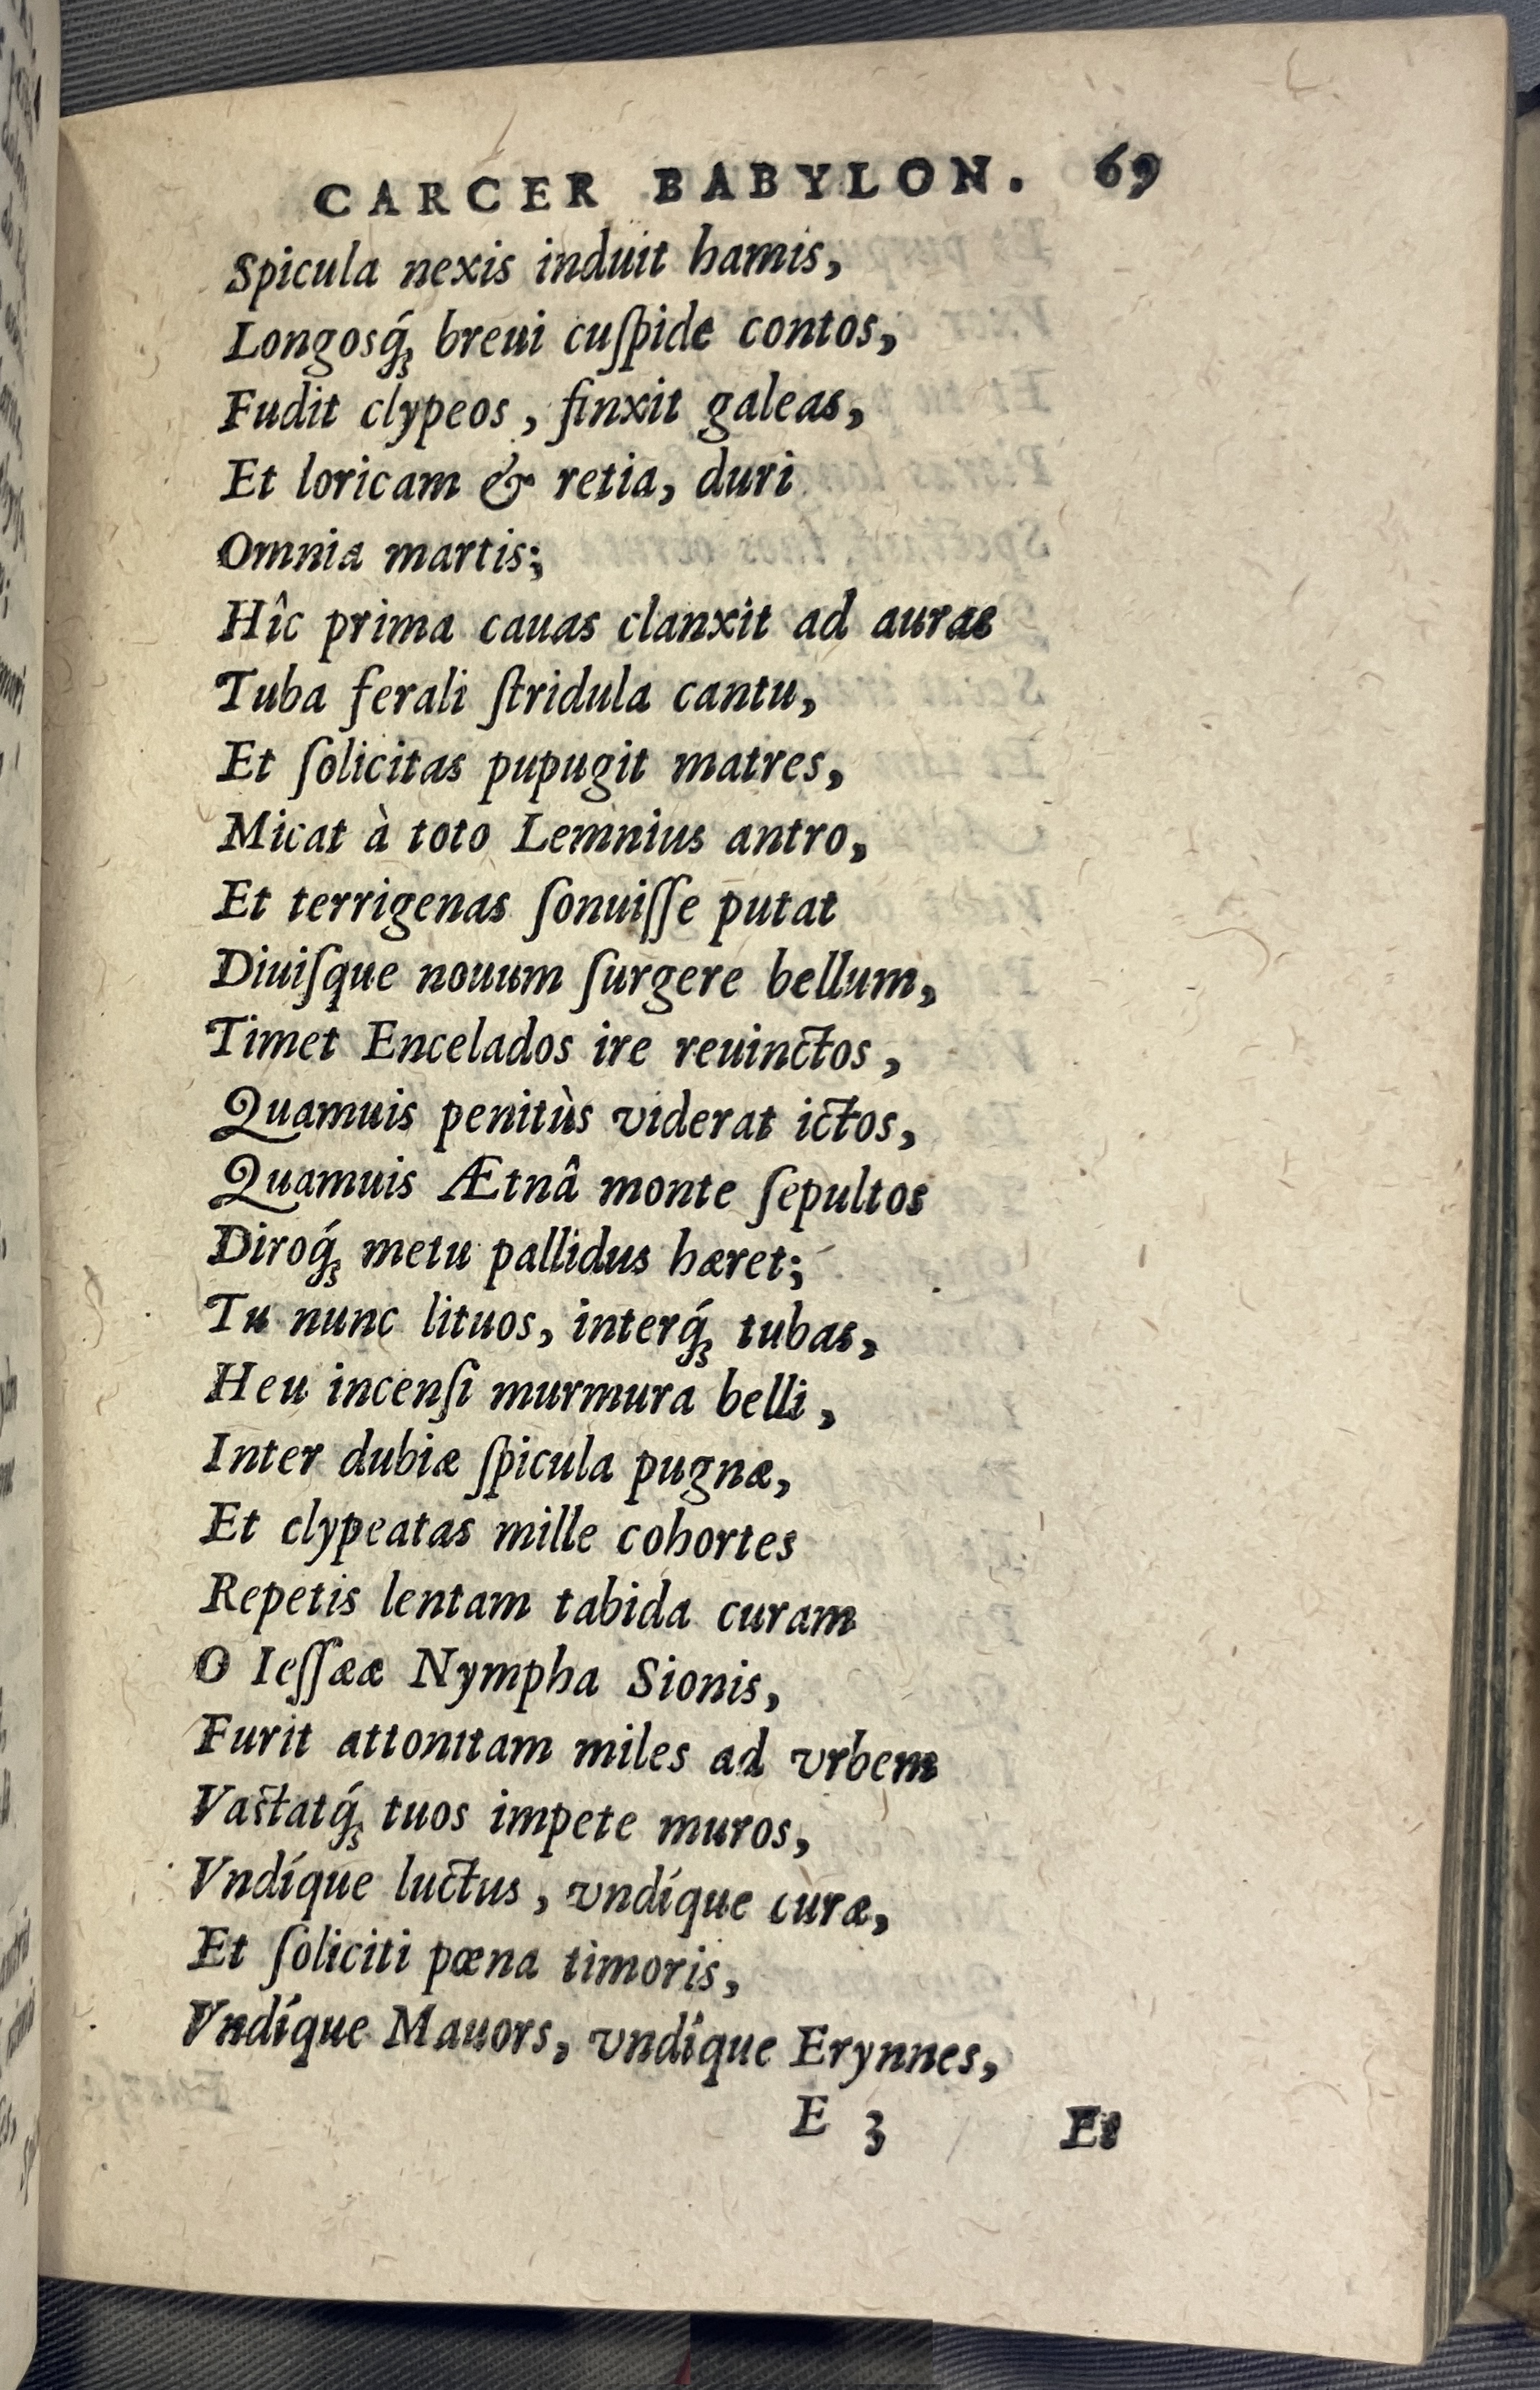 CARCER BABYLON. 69
Spicula nexis induit hamis,
Longosq́; breui cuſpide contos,
Fudit clypeos, finxit galeas,
Et loricam & retia, duri
Omnia martis;
Hîc prima cauas clanxit ad auras
Tuba ferali ſtridula cantu,
Et ſolicitas pupugit matres,
Micat à toto Lemnius antro,
Et terrigenas ſonuiſſe putat
Diuiſque nouum ſurgere bellum,
Timet Encelados ire reuinctos,
Quamuis penitùs viderat ictos,
Quamuis Ætnâ monte ſepultos
Diroq́; metu pallidus hæret;
Tu nunc lituos, interq́; tubas,
Heu incenſi murmura belli,
Inter dubiæ ſpicula pugnæ,
Et clypeatas mille cohortes
Repetis lentam tabida curam
O Ieſſææ Nympha Sionis,
Furit attonitam miles ad vrbem
Vastatq́; tuos impete muros,
Vndíque luctus, vndíque curæ,
Et ſoliciti pœna timoris,
Vndíque Mauors, vndíque Erynnes,
E 3 Et